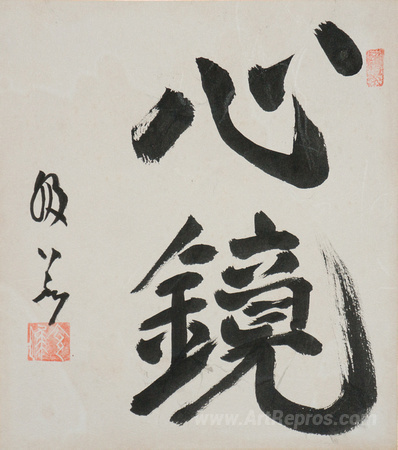 心鏡
www.ArtRepros.com